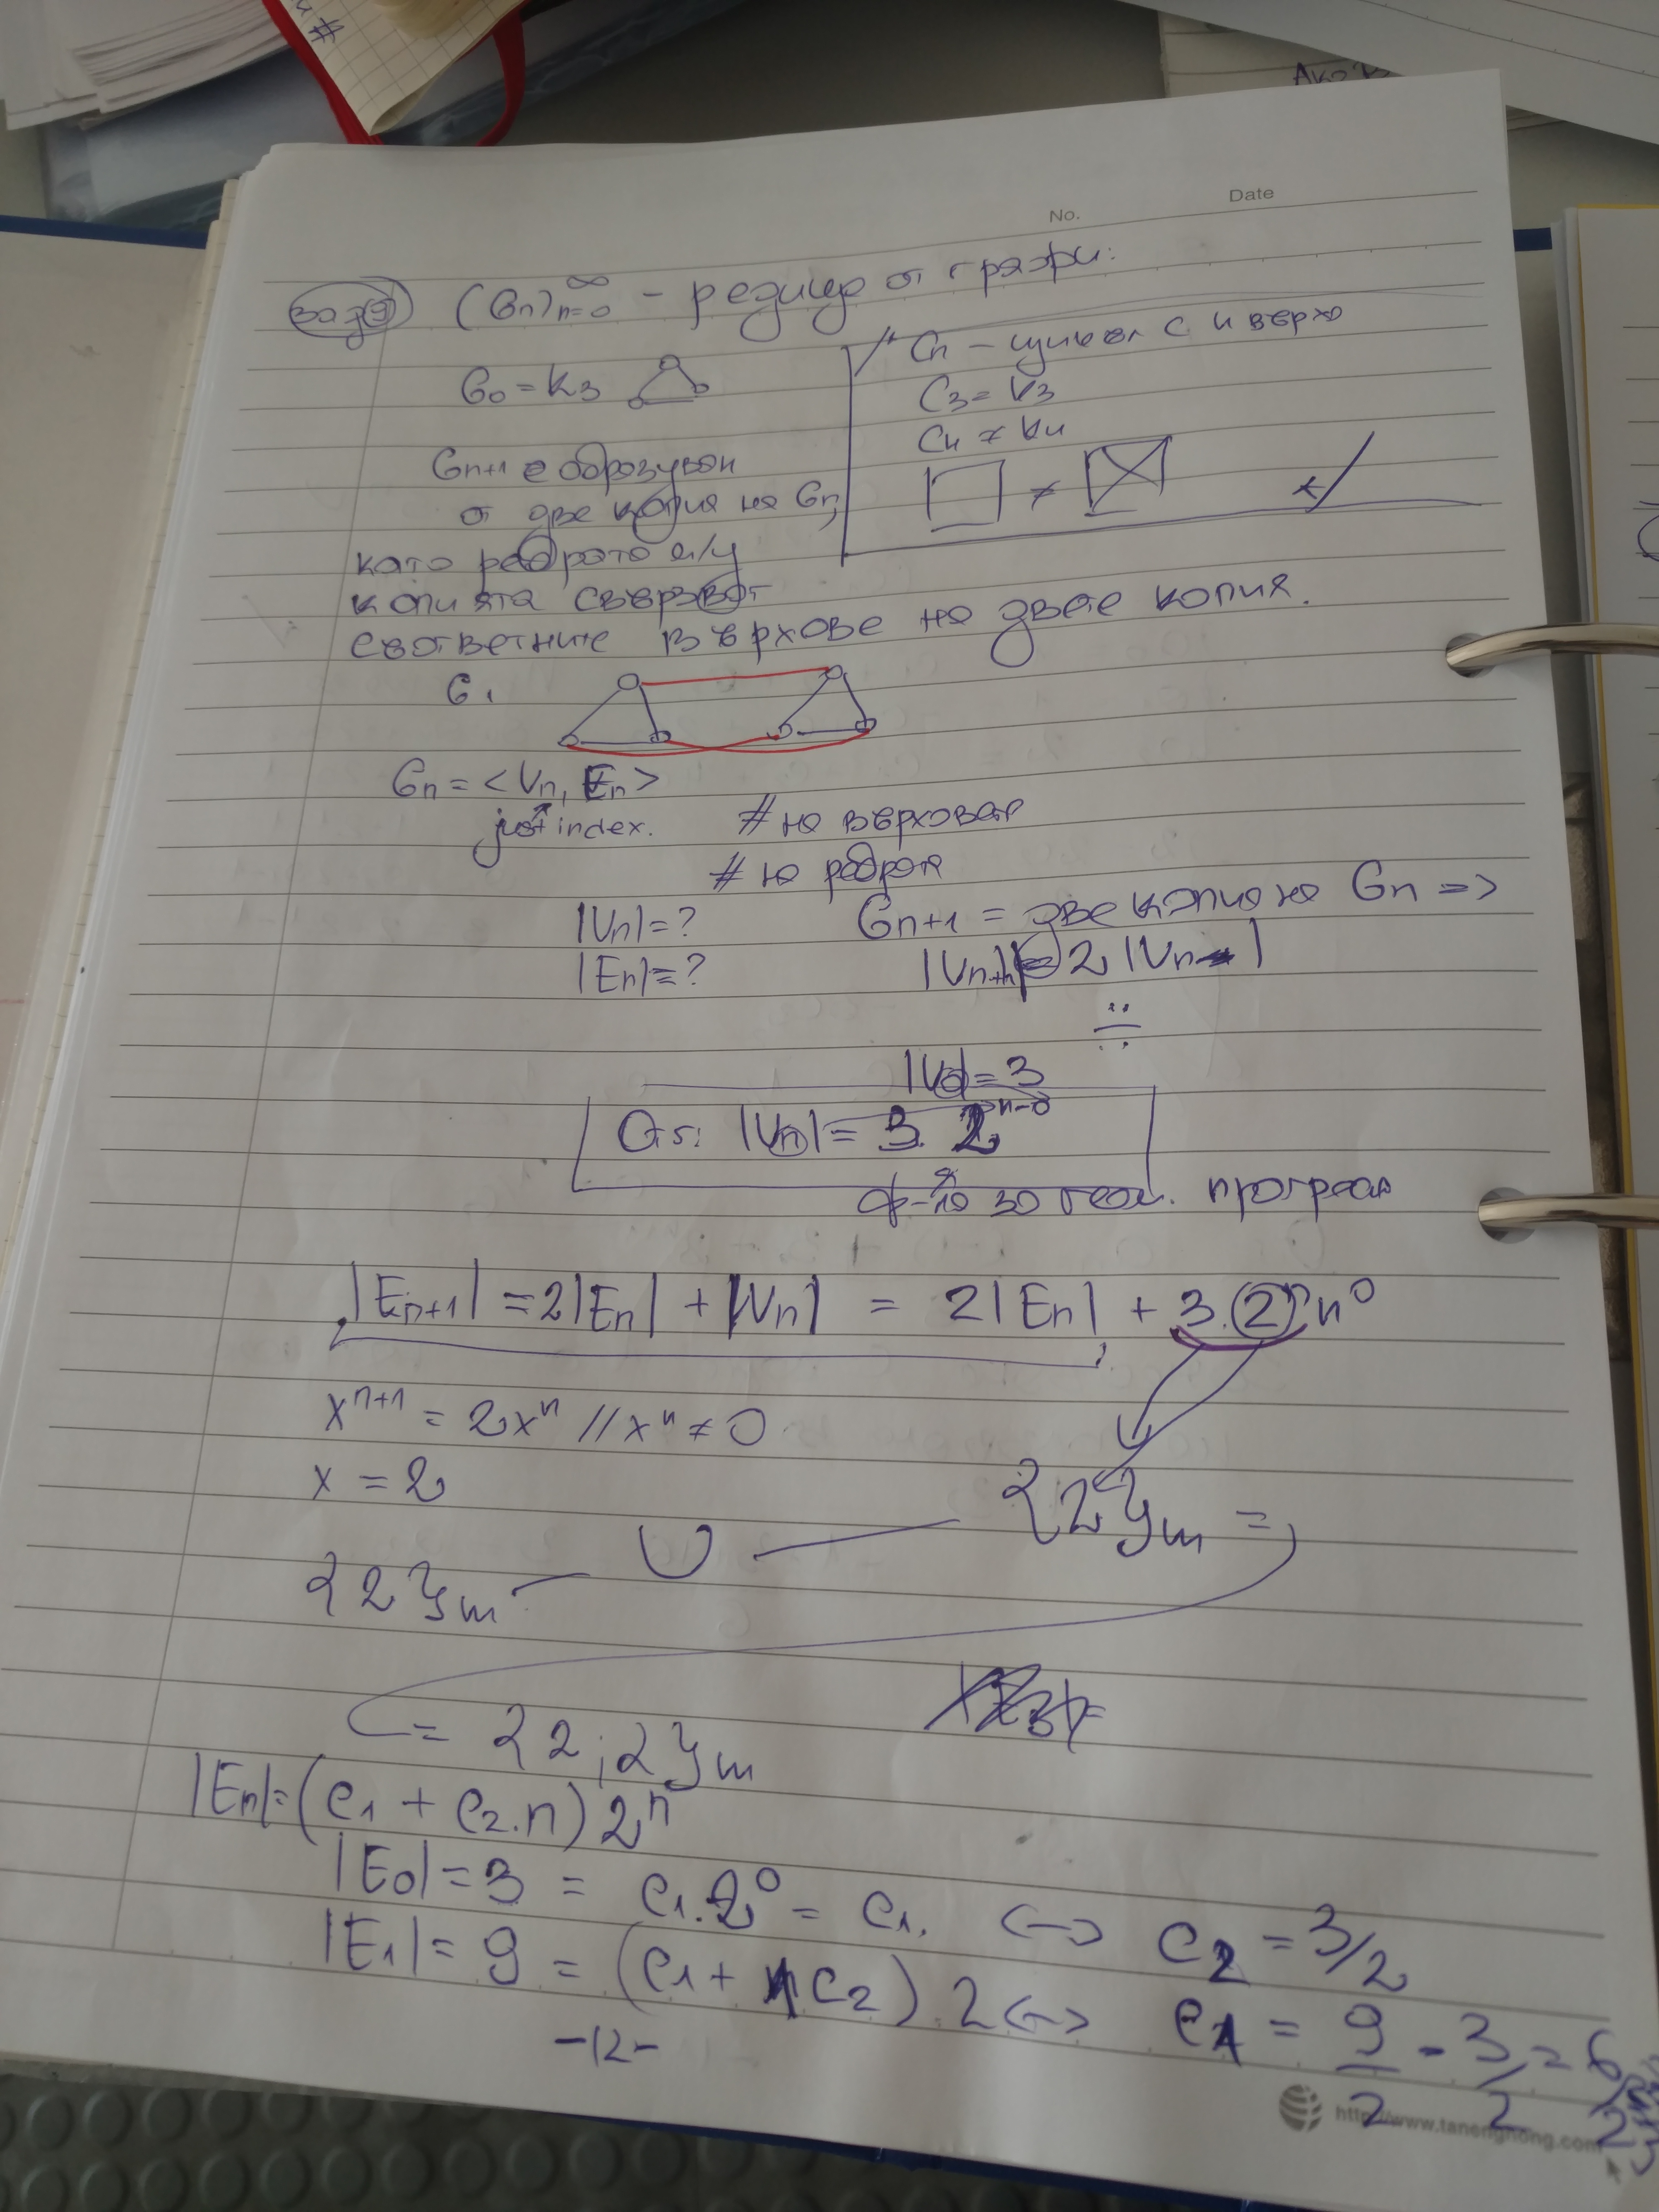 No. Date
зад 9 (Gn)n=0^∞ - редица от графи:
G0 = K3
/* Cn - цикъл с n върха
C3 = K3
C4 ≠ K4
≠
*/
Gn+1 е образуван
от две копия на Gn,
като ребрата м/у
копията свързват
съответните върхове на двете копия.
G1
Gn = <Vn, En>
just index.
# на върховете
# на ребрата
|Vn| = ?
|En| = ?
Gn+1 = две копия на Gn =>
|Vn+1| = 2.|Vn|
|V0| = 3
От: |Vn| = 3. 2^n-0
ф-ла за геом. прогресия
|En+1| = 2|En| + |Vn| = 2|En| + 3.(2)^n n^0
x^n+1 = 2x^n // x^n ≠ 0
x = 2
{2}м ∪ {2}м =
= {2;2}м
|En| = (c1 + c2.n) 2^n
|E0| = 3 = c1.2^0 = c1. <-> c2 = 3/2
|E1| = 9 = (c1 + 1c2).2 <-> c1 = 9/2 - 3/2 = 6/2
-12-
http://www.tanenghong.com